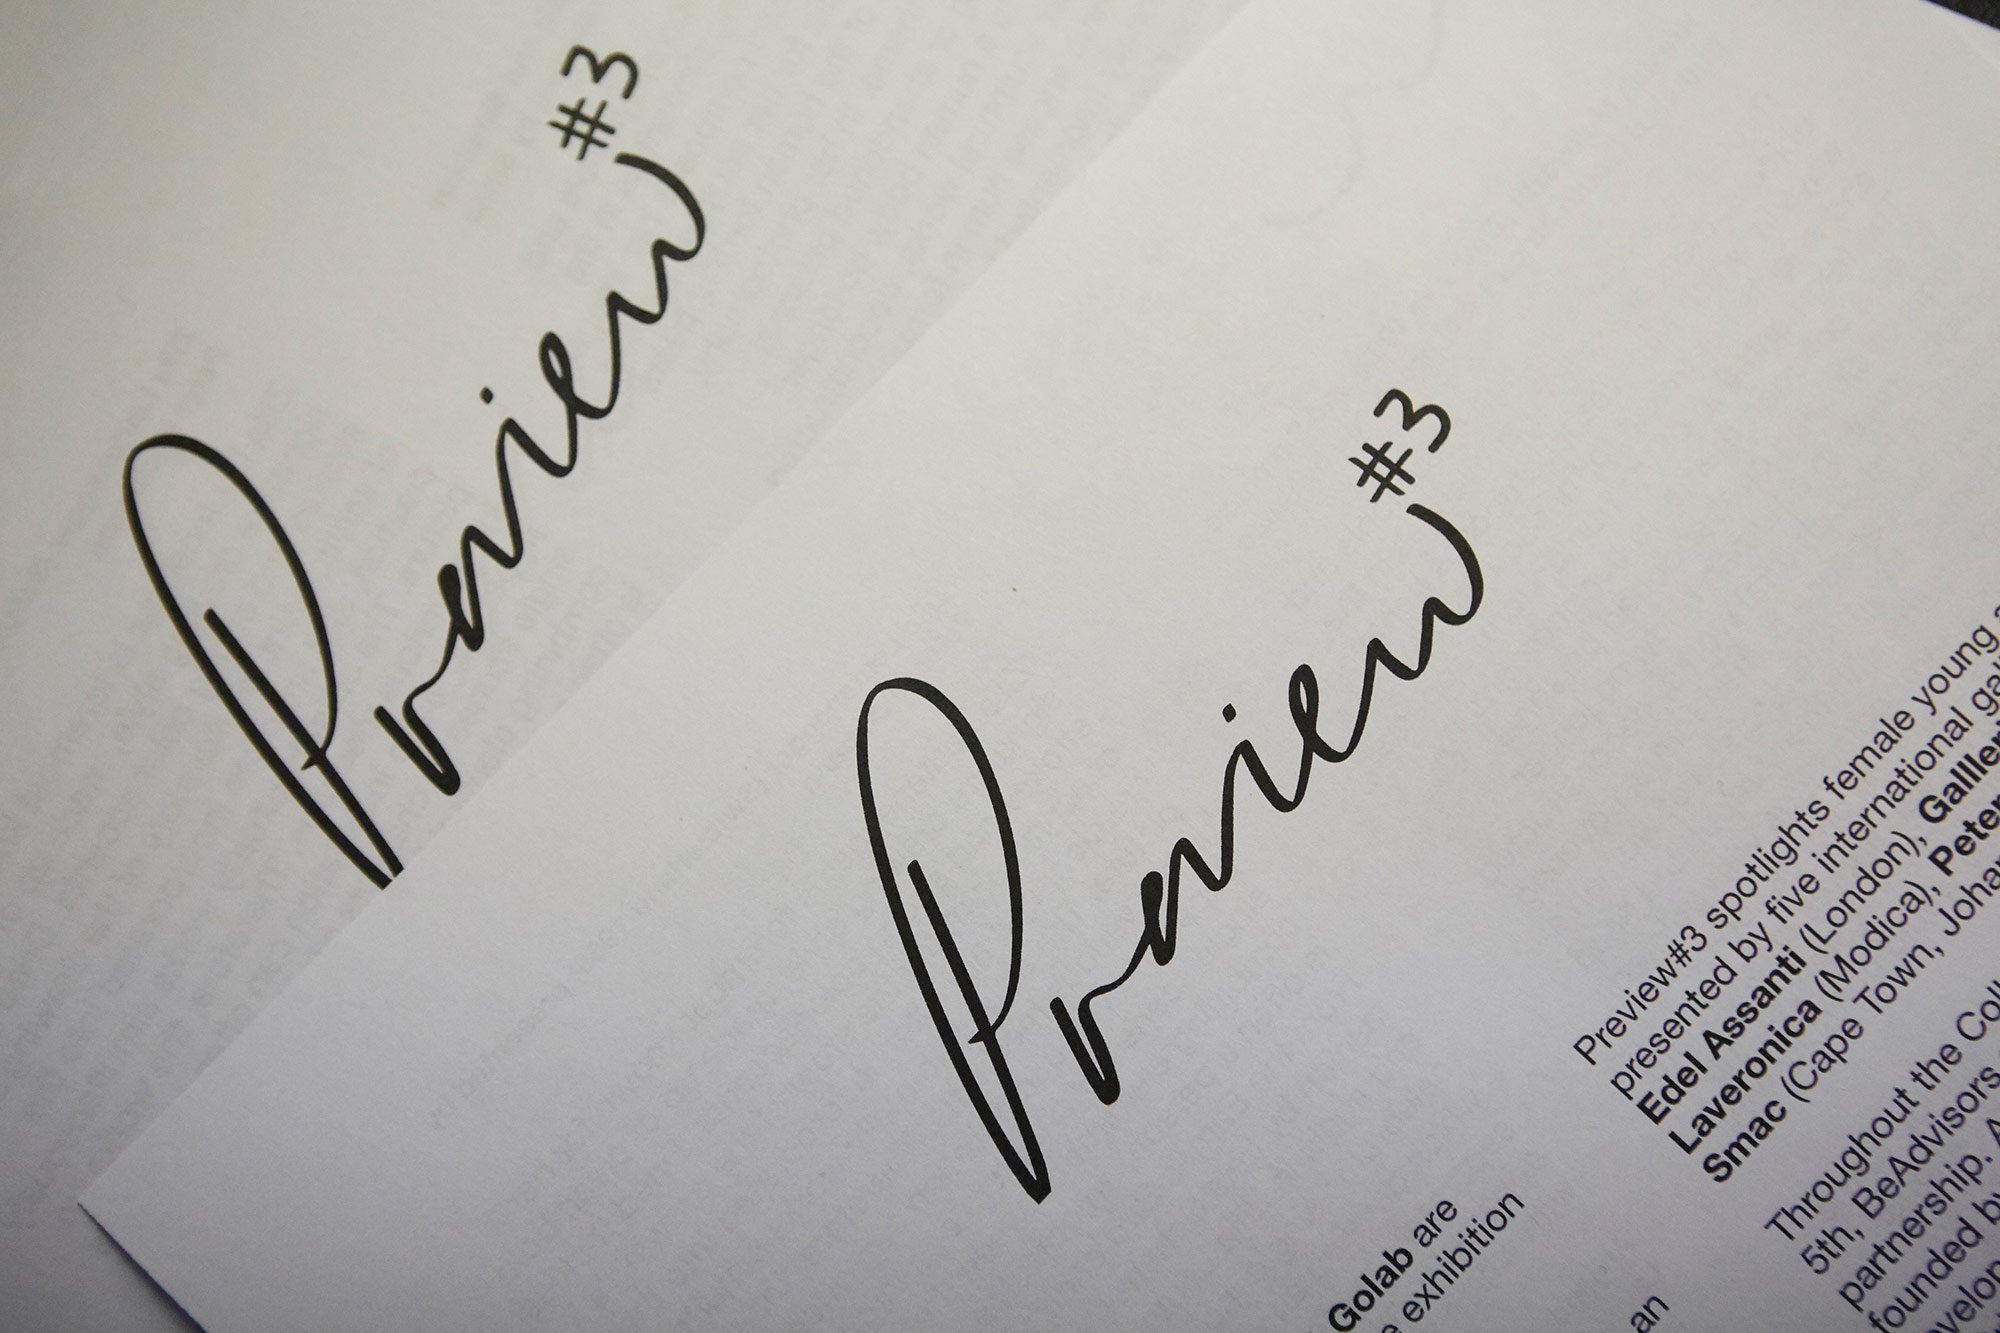 Preview #3
Preview #3
Preview#3 spotlights female young
presented by five international
Edel Assanti (London),
Laveronica (Modica), Peter
Smac (Cape Town,
Throughout the
5th, BeAdvisors
partnership.
founded
Golab are
exhibition
an